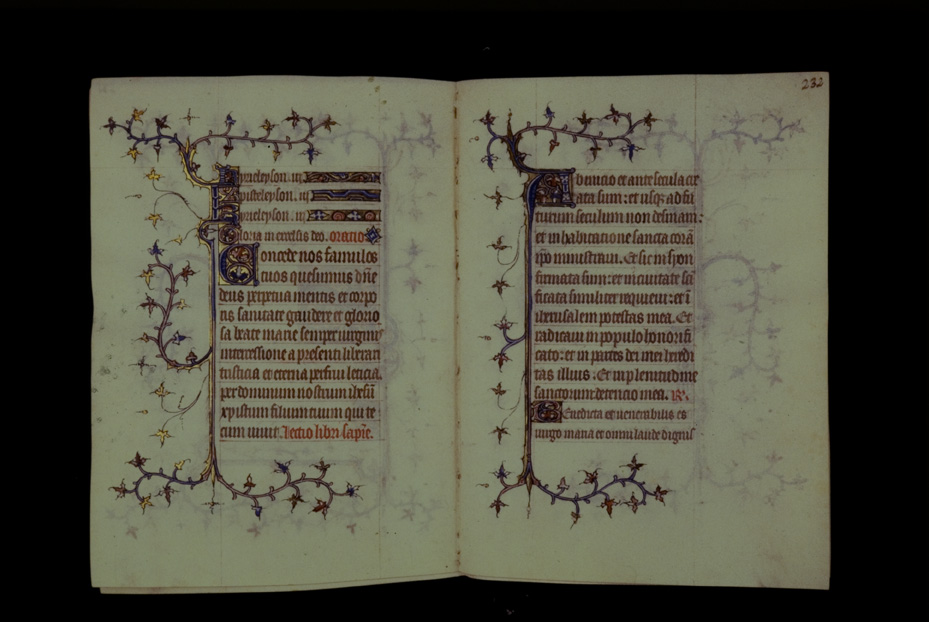 Kyrieleyson. iij
Xpisteleyson. iij
Kyrieleyson. iij
Gloria in excelsis deo. oratio
Concede nos famulos
tuos quesumus dñe
deus perpetua mentis et corpo
ris sanitate gaudere et glorio
sa beate marie semper uirginis
intercessione a presenti liberari
tristicia et eterna perfrui leticia.
per dominum nostrum ihesũ
xpistum filium tuum qui te
cum uiuit. lectio libri sapiẽ.
232
Ab inicio et ante secula cre
ata sum: et usq; ad fu
turum seculum non desinam:
et in habitatione sancta corã
ipo ministraui. Et sic in syon
firmata sum: et in ciuitate sc̃i
ficata similiter requieui: et ĩ
iherusalem potestas mea. Et
radicaui in populo honorifi
cato: et in partes dei mei heredi
tas illius: Et in plenitudine
sanctorum detencio mea. R̃.
Benedicta et uenerabilis es
uirgo maria et omni laude dignis